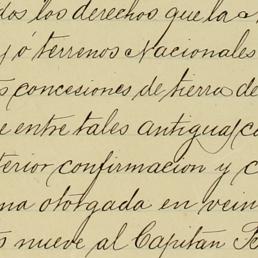 dos los derechos que la
y ó terrenos Nacionales
s concesiones de tierra de
e entre tales antiguas co
terior confirmacion y c
na otorgada en vein
s nueve al Capitan Fe